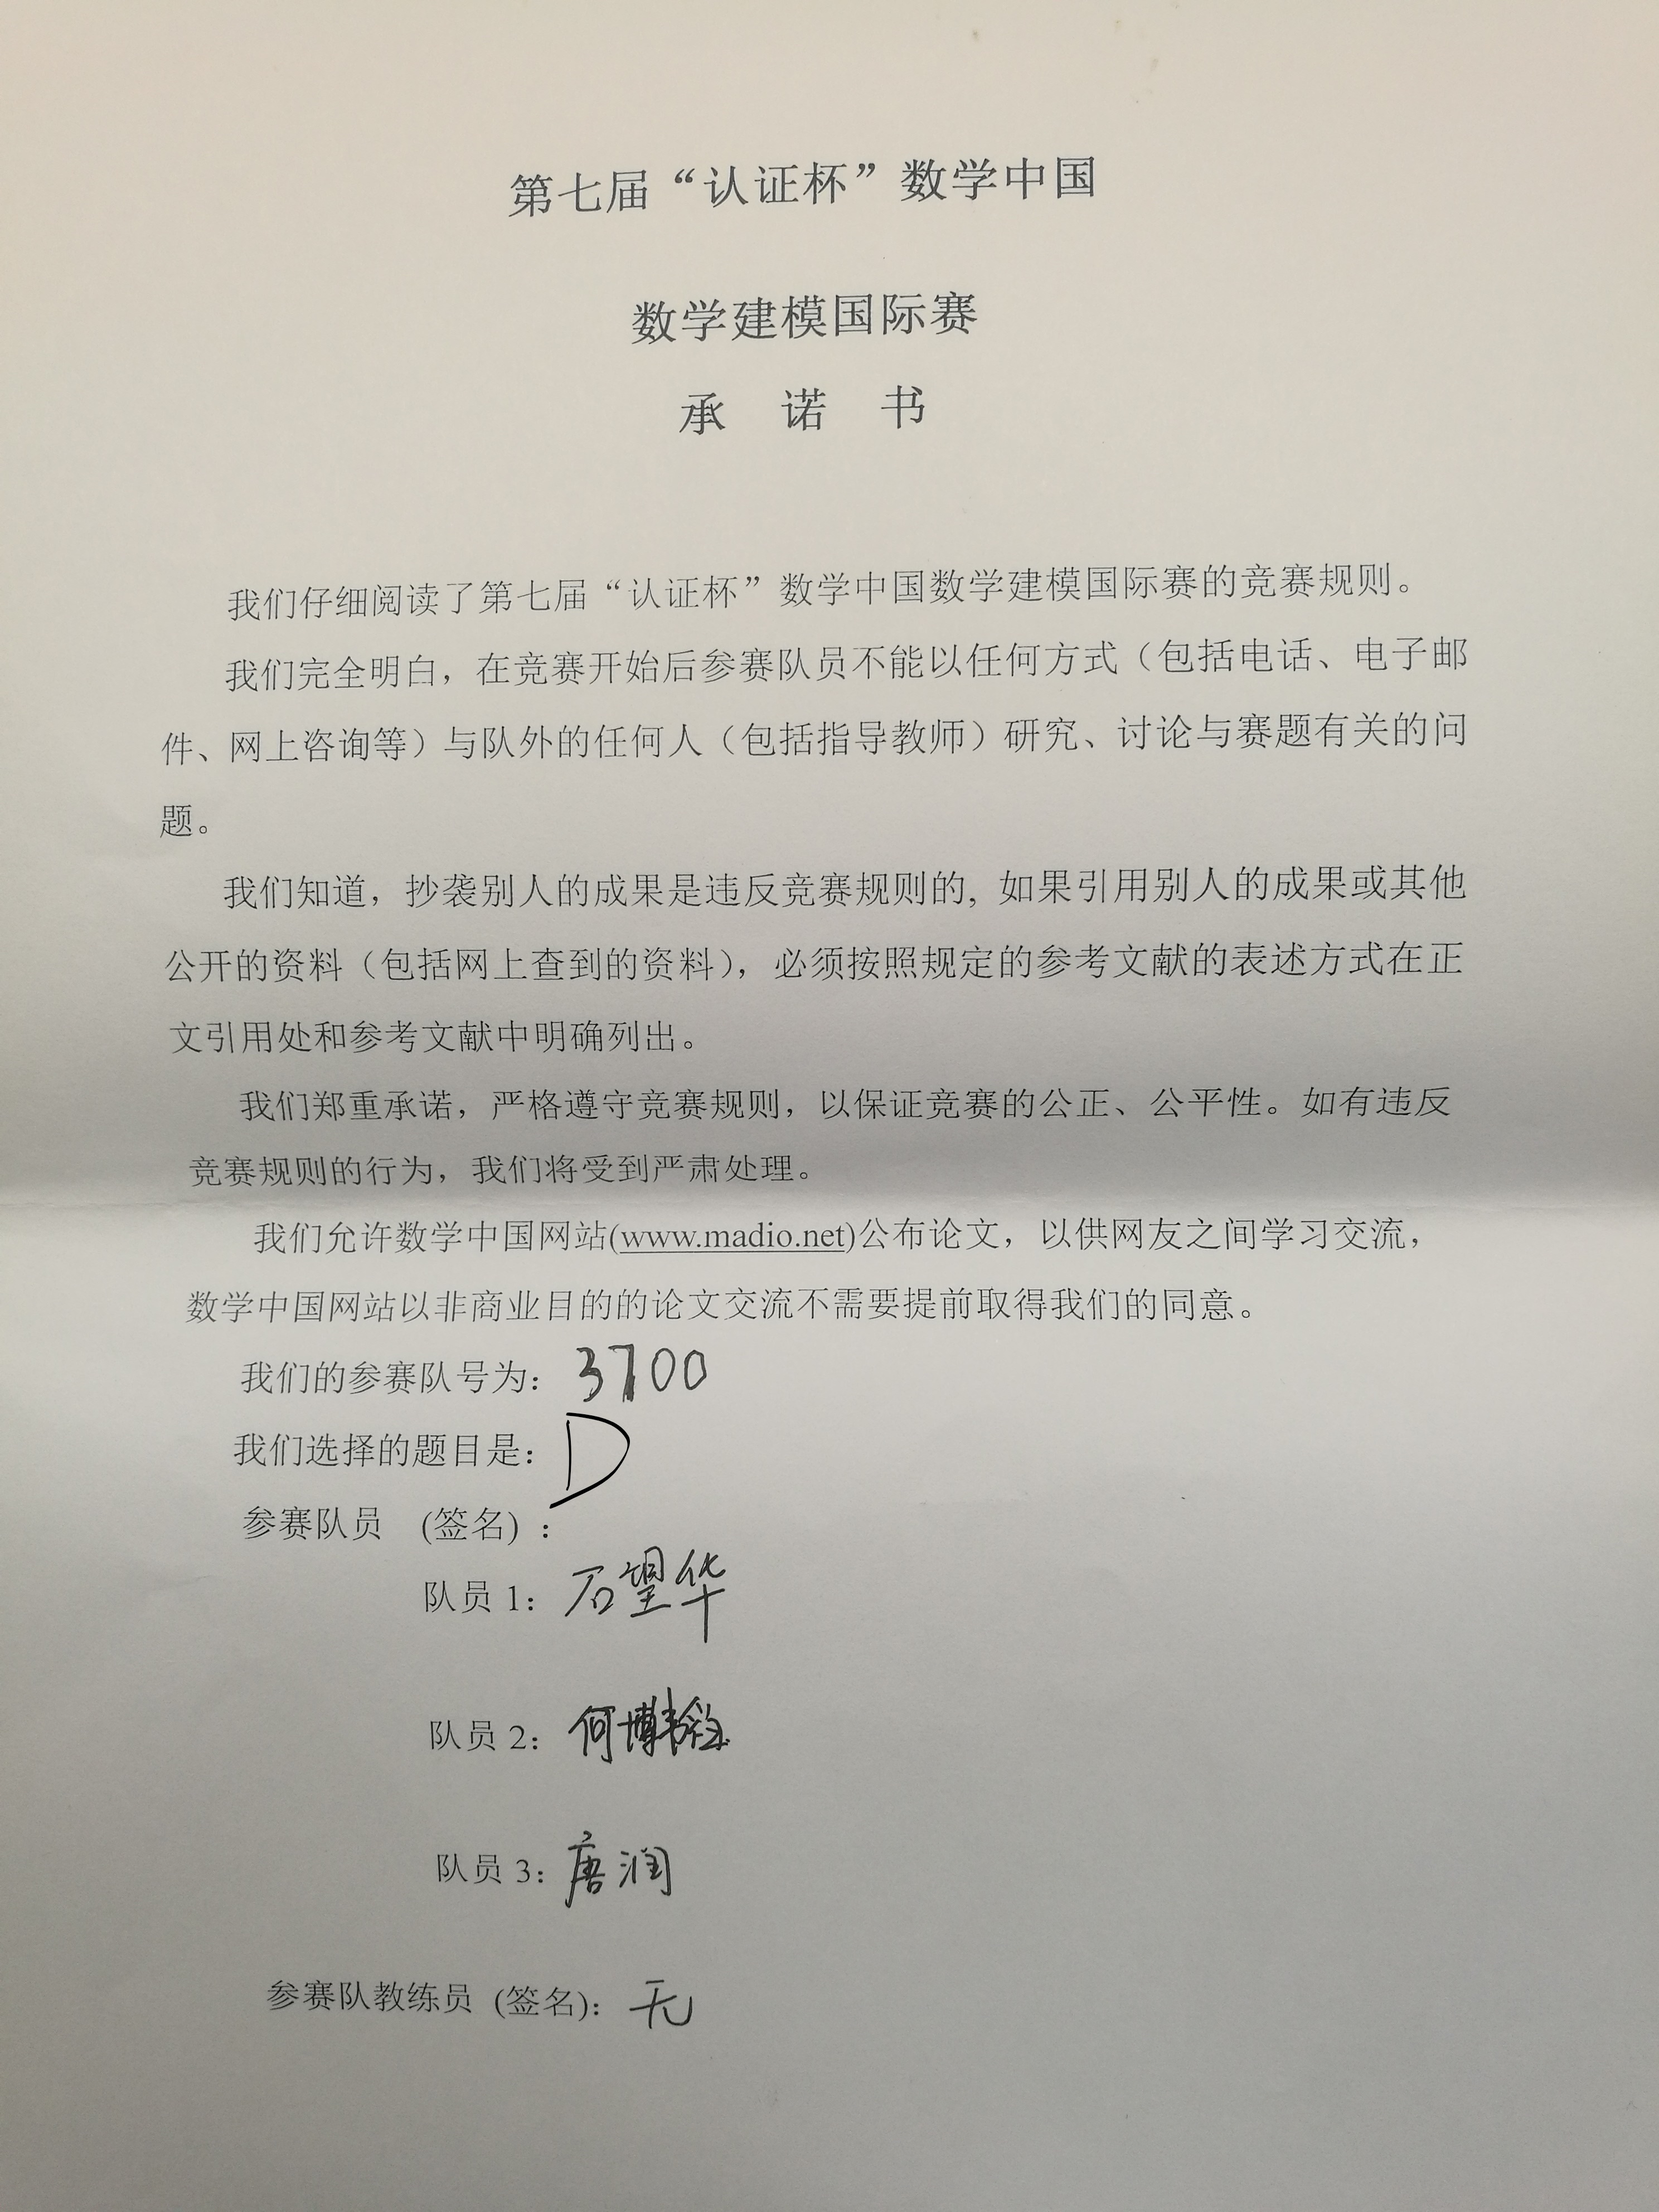 第七届“认证杯”数学中国
数学建模国际赛
承 诺 书
我们仔细阅读了第七届“认证杯”数学中国数学建模国际赛的竞赛规则。
我们完全明白，在竞赛开始后参赛队员不能以任何方式（包括电话、电子邮
件、网上咨询等）与队外的任何人（包括指导教师）研究、讨论与赛题有关的问
题。
我们知道，抄袭别人的成果是违反竞赛规则的, 如果引用别人的成果或其他
公开的资料（包括网上查到的资料），必须按照规定的参考文献的表述方式在正
文引用处和参考文献中明确列出。
我们郑重承诺，严格遵守竞赛规则，以保证竞赛的公正、公平性。如有违反
竞赛规则的行为，我们将受到严肃处理。
我们允许数学中国网站(www.madio.net)公布论文，以供网友之间学习交流，
数学中国网站以非商业目的的论文交流不需要提前取得我们的同意。
我们的参赛队号为：3700
我们选择的题目是：D
参赛队员 (签名)：
队员 1：石望华
队员 2：何博
队员 3：唐润
参赛队教练员 (签名)：无